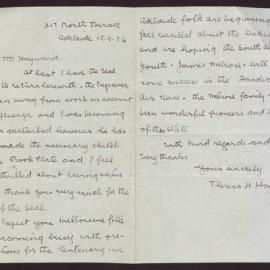 217 North Terrace
Adelaide 18.9.34
Mr Hayward.
At last I have the Seal
its return herewith - the engraver
been away from work on account
influenza and I was becoming
perturbed however he has
made the necessary sketch
the Book Plate and I feel
thrilled about having one
thank you very much for the
of the Seal.
expect your Melbourne folk
becoming busy with pre-
tions for the Centenary - we
Adelaide folk are beginning
feel excited about the
and are hoping the South
youth - James Melrose will
some success in the Handicap
Air Race - the Melrose family
been wonderful pioneers and
of the State
With kind regards and
very thanks
Yours sincerely
Theresa H